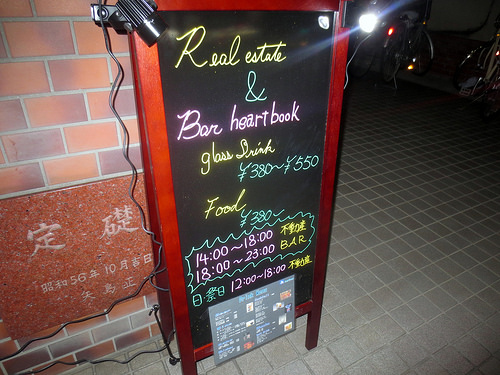 Real estate
&
Bar heartbook
glass Drink
¥380〜¥550
Food
¥380〜
14:00〜18:00 不動産
18:00〜23:00 BAR
日・祭日 12:00〜18:00 不動産
定礎
昭和56年10月吉日